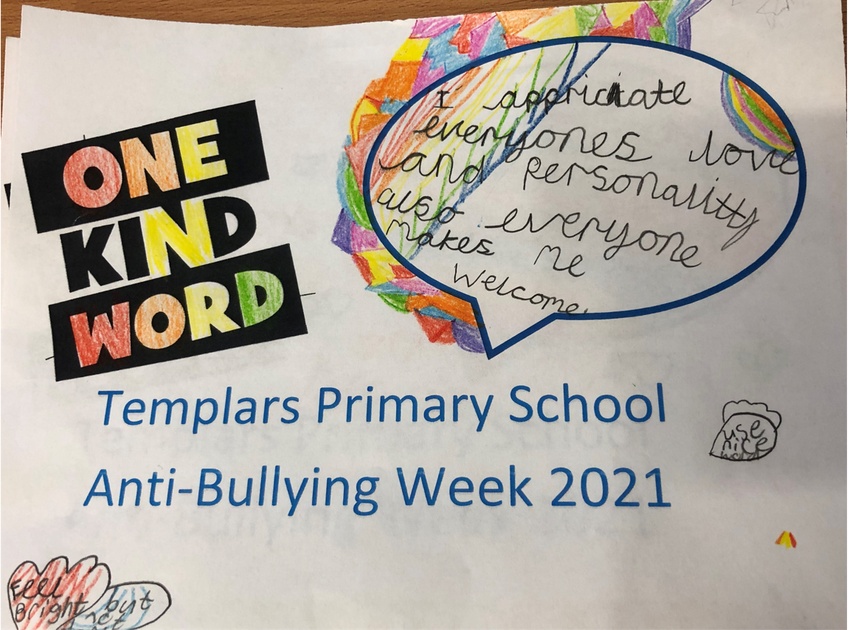 ONE
KIND
WORD
I appriciate
everyones love
and personality
also everyone
makes me
welcome.
Templars Primary School
Anti-Bullying Week 2021
use
nice
words
Feel
Bright but
not